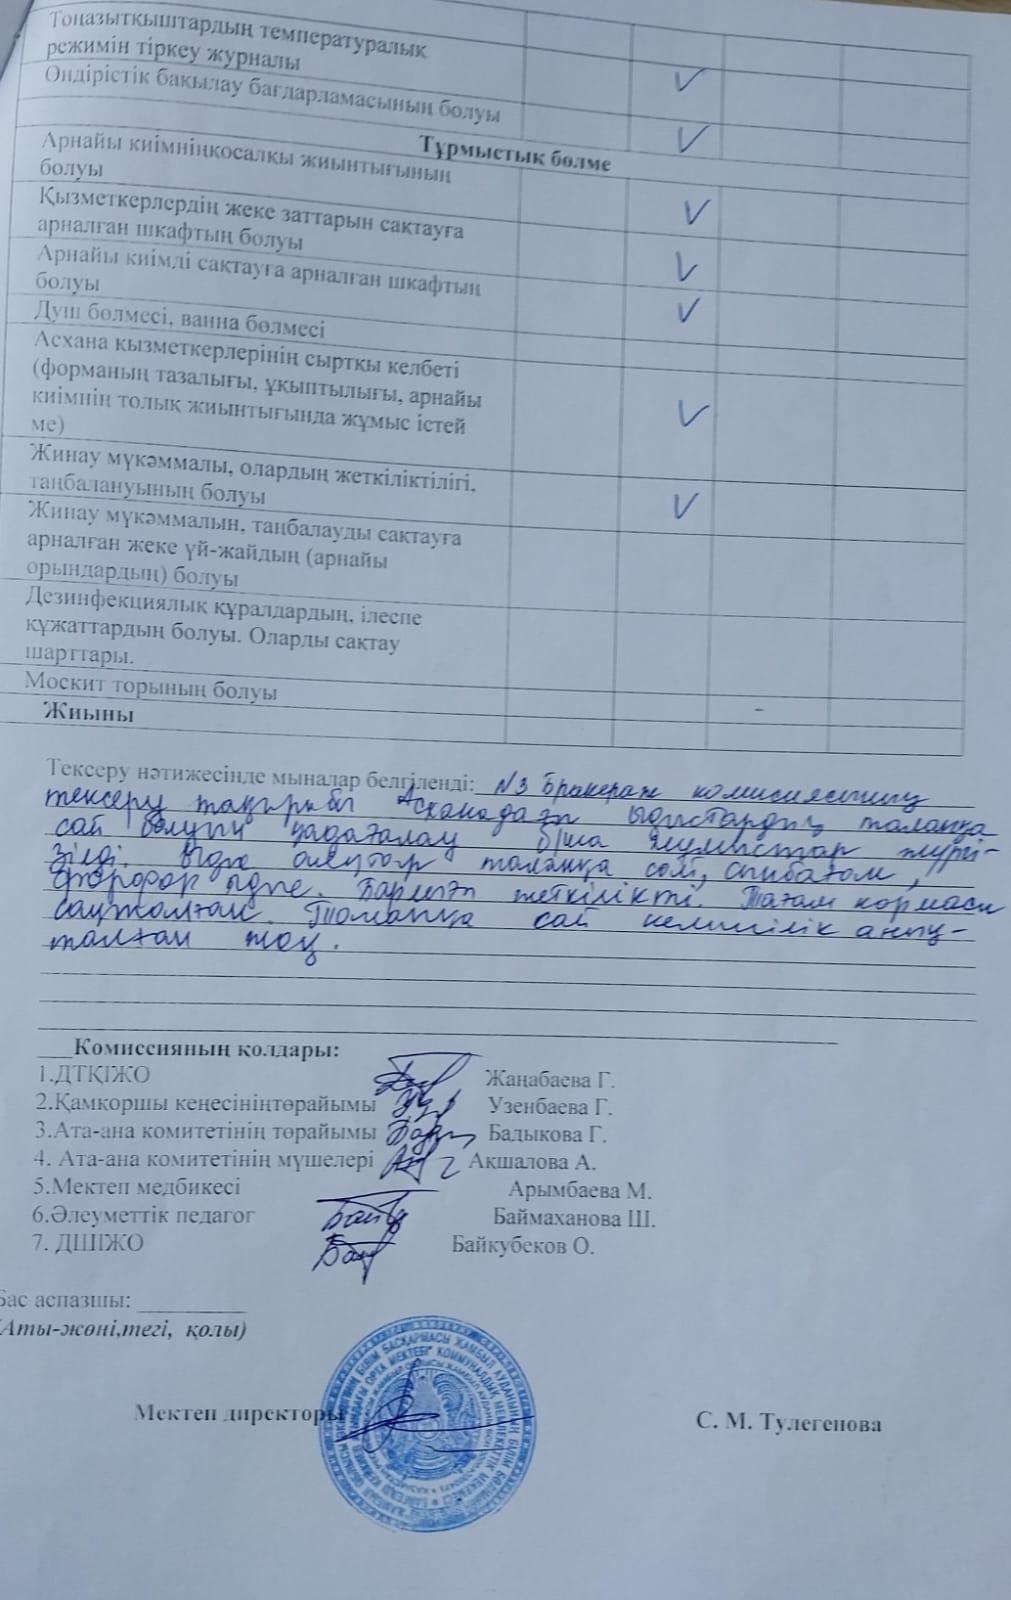 Тоңазытқыштардың температуралық
режимін тіркеу журналы
Өндірістік бақылау бағдарламасының болуы
Тұрмыстық бөлме
Арнайы киімніңқосалқы жиынтығының
болуы
Қызметкерлердің жеке заттарын сақтауға
арналған шкафтың болуы
Арнайы киімді сақтауға арналған шкафтың
болуы
Душ бөлмесі, ванна бөлмесі
Асхана қызметкерлерінің сыртқы келбеті
(форманың тазалығы, ұқыптылығы, арнайы
киімнің толық жиынтығында жұмыс істей
ме)
Жинау мүкәммалы, олардың жеткіліктілігі,
таңбалануының болуы
Жинау мүкәммалын, таңбалауды сақтауға
арналған жеке үй-жайдың (арнайы
орындардың) болуы
Дезинфекциялық құралдардың, ілеспе
құжаттардың болуы. Оларды сақтау
шарттары.
Москит торының болуы
Жиыны
Тексеру нәтижесінде мыналар белгіленді: №3 Бракераж комисиясының
тексеру тақырыбы Асханадағы ыдыстардың талапқа
сай болуын қадағалау б/ша жұмыстар жүргі-
зілді. Ыдыс талапқа сай,
фарфор ыдыс. Барлығы жеткілікті. Тағам нормасы
сақталған. Талапқа сай келмеушілік анық-
талған жоқ.
Комиссияның қолдары:
1.ДТҚІЖО Жаңабаева Г.
2.Қамқоршы кеңесініңтөрайымы Узенбаева Г.
3.Ата-ана комитетінің төрайымы Бадыкова Г.
4. Ата-ана комитетінің мүшелері Ақшалова А.
5.Мектеп медбикесі Арымбаева М.
6.Әлеуметтік педагог Баймаханова Ш.
7. ДШІЖО Байкубеков О.
Бас аспазшы:
(Аты-жөні,тегі, қолы)
Мектеп директоры С. М. Тулегенова